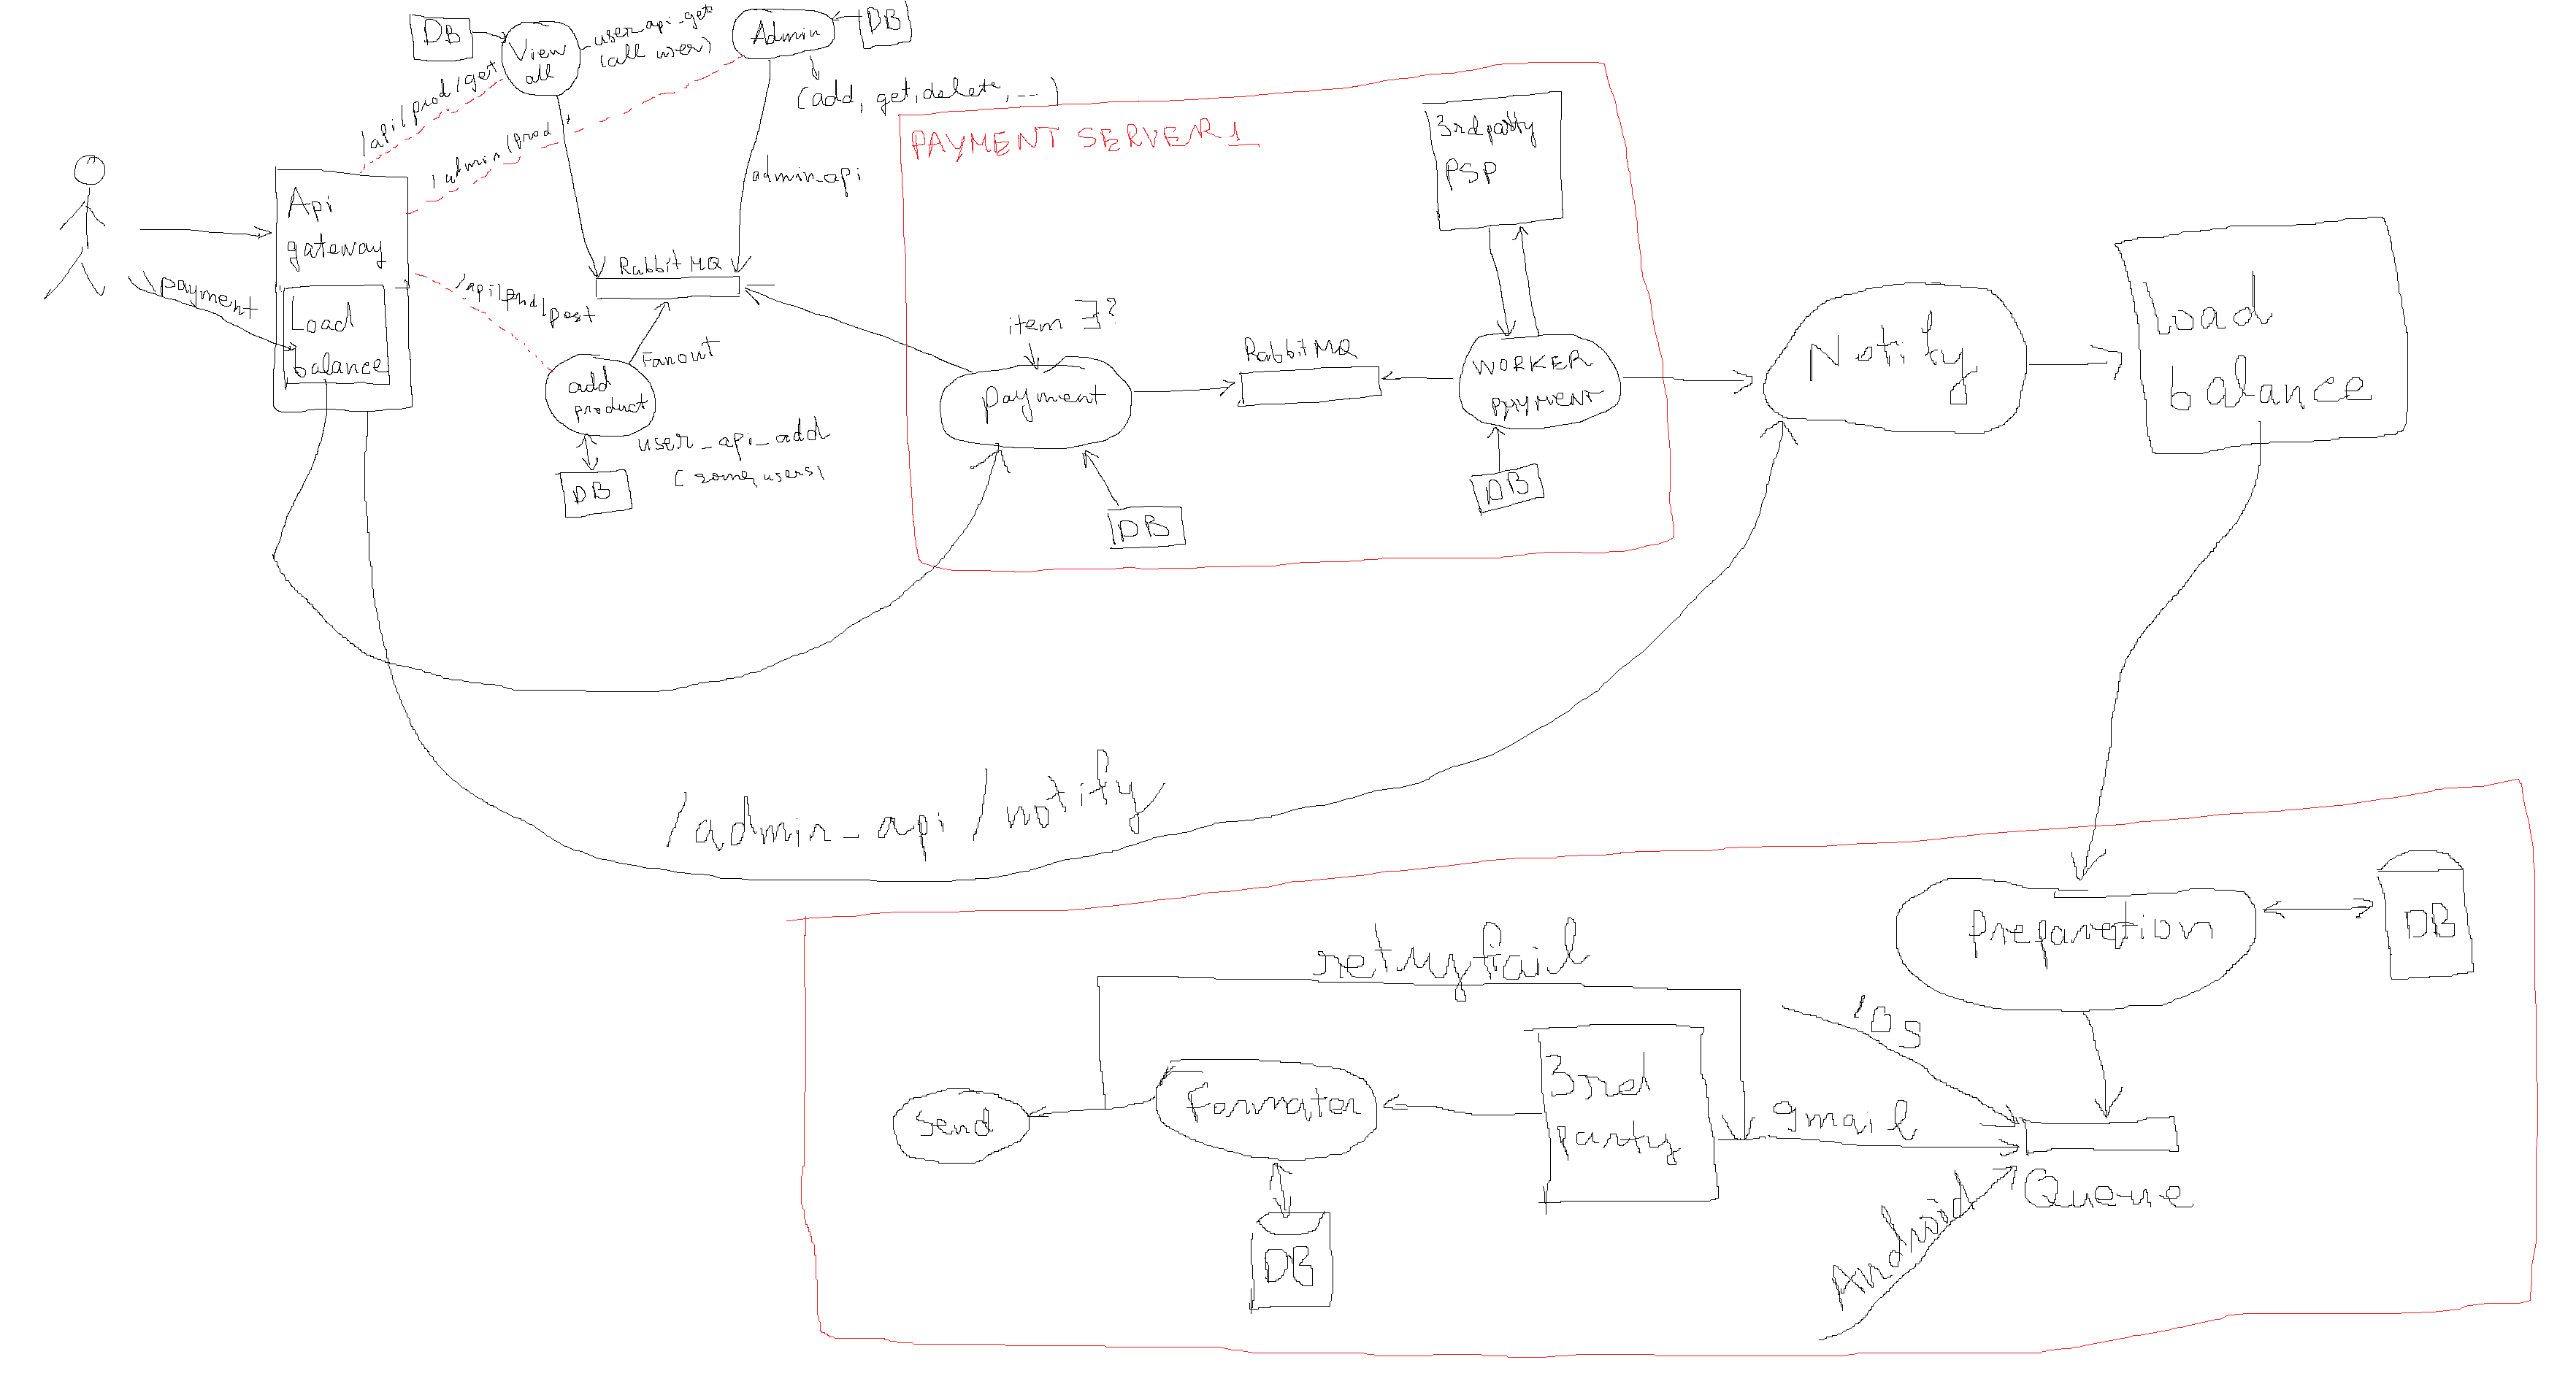 DB
View
all
user_api_get
(all user)
Admin
DB
(add, get, delete, ...)
/api/prod/get
/admin/prod
admin_api
Api
gateway
Load
balance
\payment
RabbitMQ
/api/prod/post
Fanout
add
product
user_api_add
(some users)
DB
PAYMENT SERVER 1
3rd party
PSP
item ∃?
payment
RabbitMQ
WORKER
PAYMENT
DB
DB
Notify
Load
balance
/admin_api/notify
preparation
DB
retry fail
ios
3rd
party
gmail
Formater
Send
Queue
Android
DB